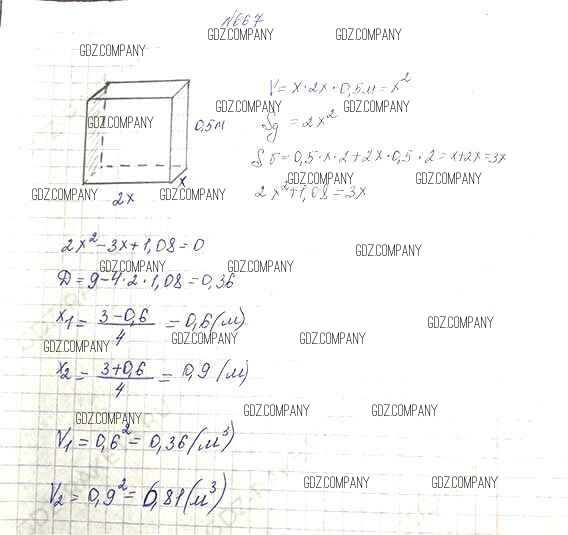 №667
GDZ.COMPANY GDZ.COMPANY
GDZ.COMPANY
V = x · 2x · 0,5м = x²
GDZ.COMPANY GDZ.COMPANY
0,5м
GDZ.COMPANY
Sд = 2x²
Sб = 0,5 · x · 2 + 2x · 0,5 · 2 = x + 2x = 3x
GDZ.COMPANY GDZ.COMPANY
x
2x² + 1,08 = 3x
GDZ.COMPANY GDZ.COMPANY
2x
2x² - 3x + 1,08 = 0
GDZ.COMPANY
GDZ.COMPANY GDZ.COMPANY
D = 9 - 4 · 2 · 1,08 = 0,36
x₁ = (3 - 0,6)/4 = 0,6 (м)
GDZ.COMPANY
GDZ.COMPANY GDZ.COMPANY GDZ.COMPANY
x₂ = (3 + 0,6)/4 = 0,9 (м)
GDZ.COMPANY GDZ.COMPANY GDZ.COMPANY
V₁ = 0,6² = 0,36 (м³)
GDZ.COMPANY GDZ.COMPANY
V₂ = 0,9² = 0,81 (м³)